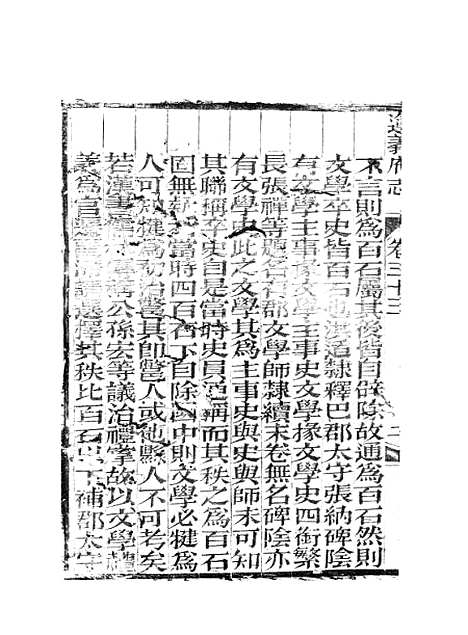 遵義府志
卷三十三
二
不言則爲百石屬其後皆自辟除故通爲百石然則
文學卒史皆百石也洪适隸釋巴郡太守張納碑陰
有文學主事掾文學主事史文學掾文學史四銜繁
長張禪等題名有郡文學師隸續末卷無名碑陰亦
有文學史此之文學其爲主事史與史與師未可知
其聯稱卒史自是當時史員通稱而其秩之爲百石
固無疑當時四百石下自除國中則文學必犍爲
人可知犍爲初治鄨其卽鄨人或他縣人不可考矣
若漢書儒林傳稱公孫宏等議治禮掌故以文學禮
義爲官遷留滯請選擇其秩比百石以下補郡太守